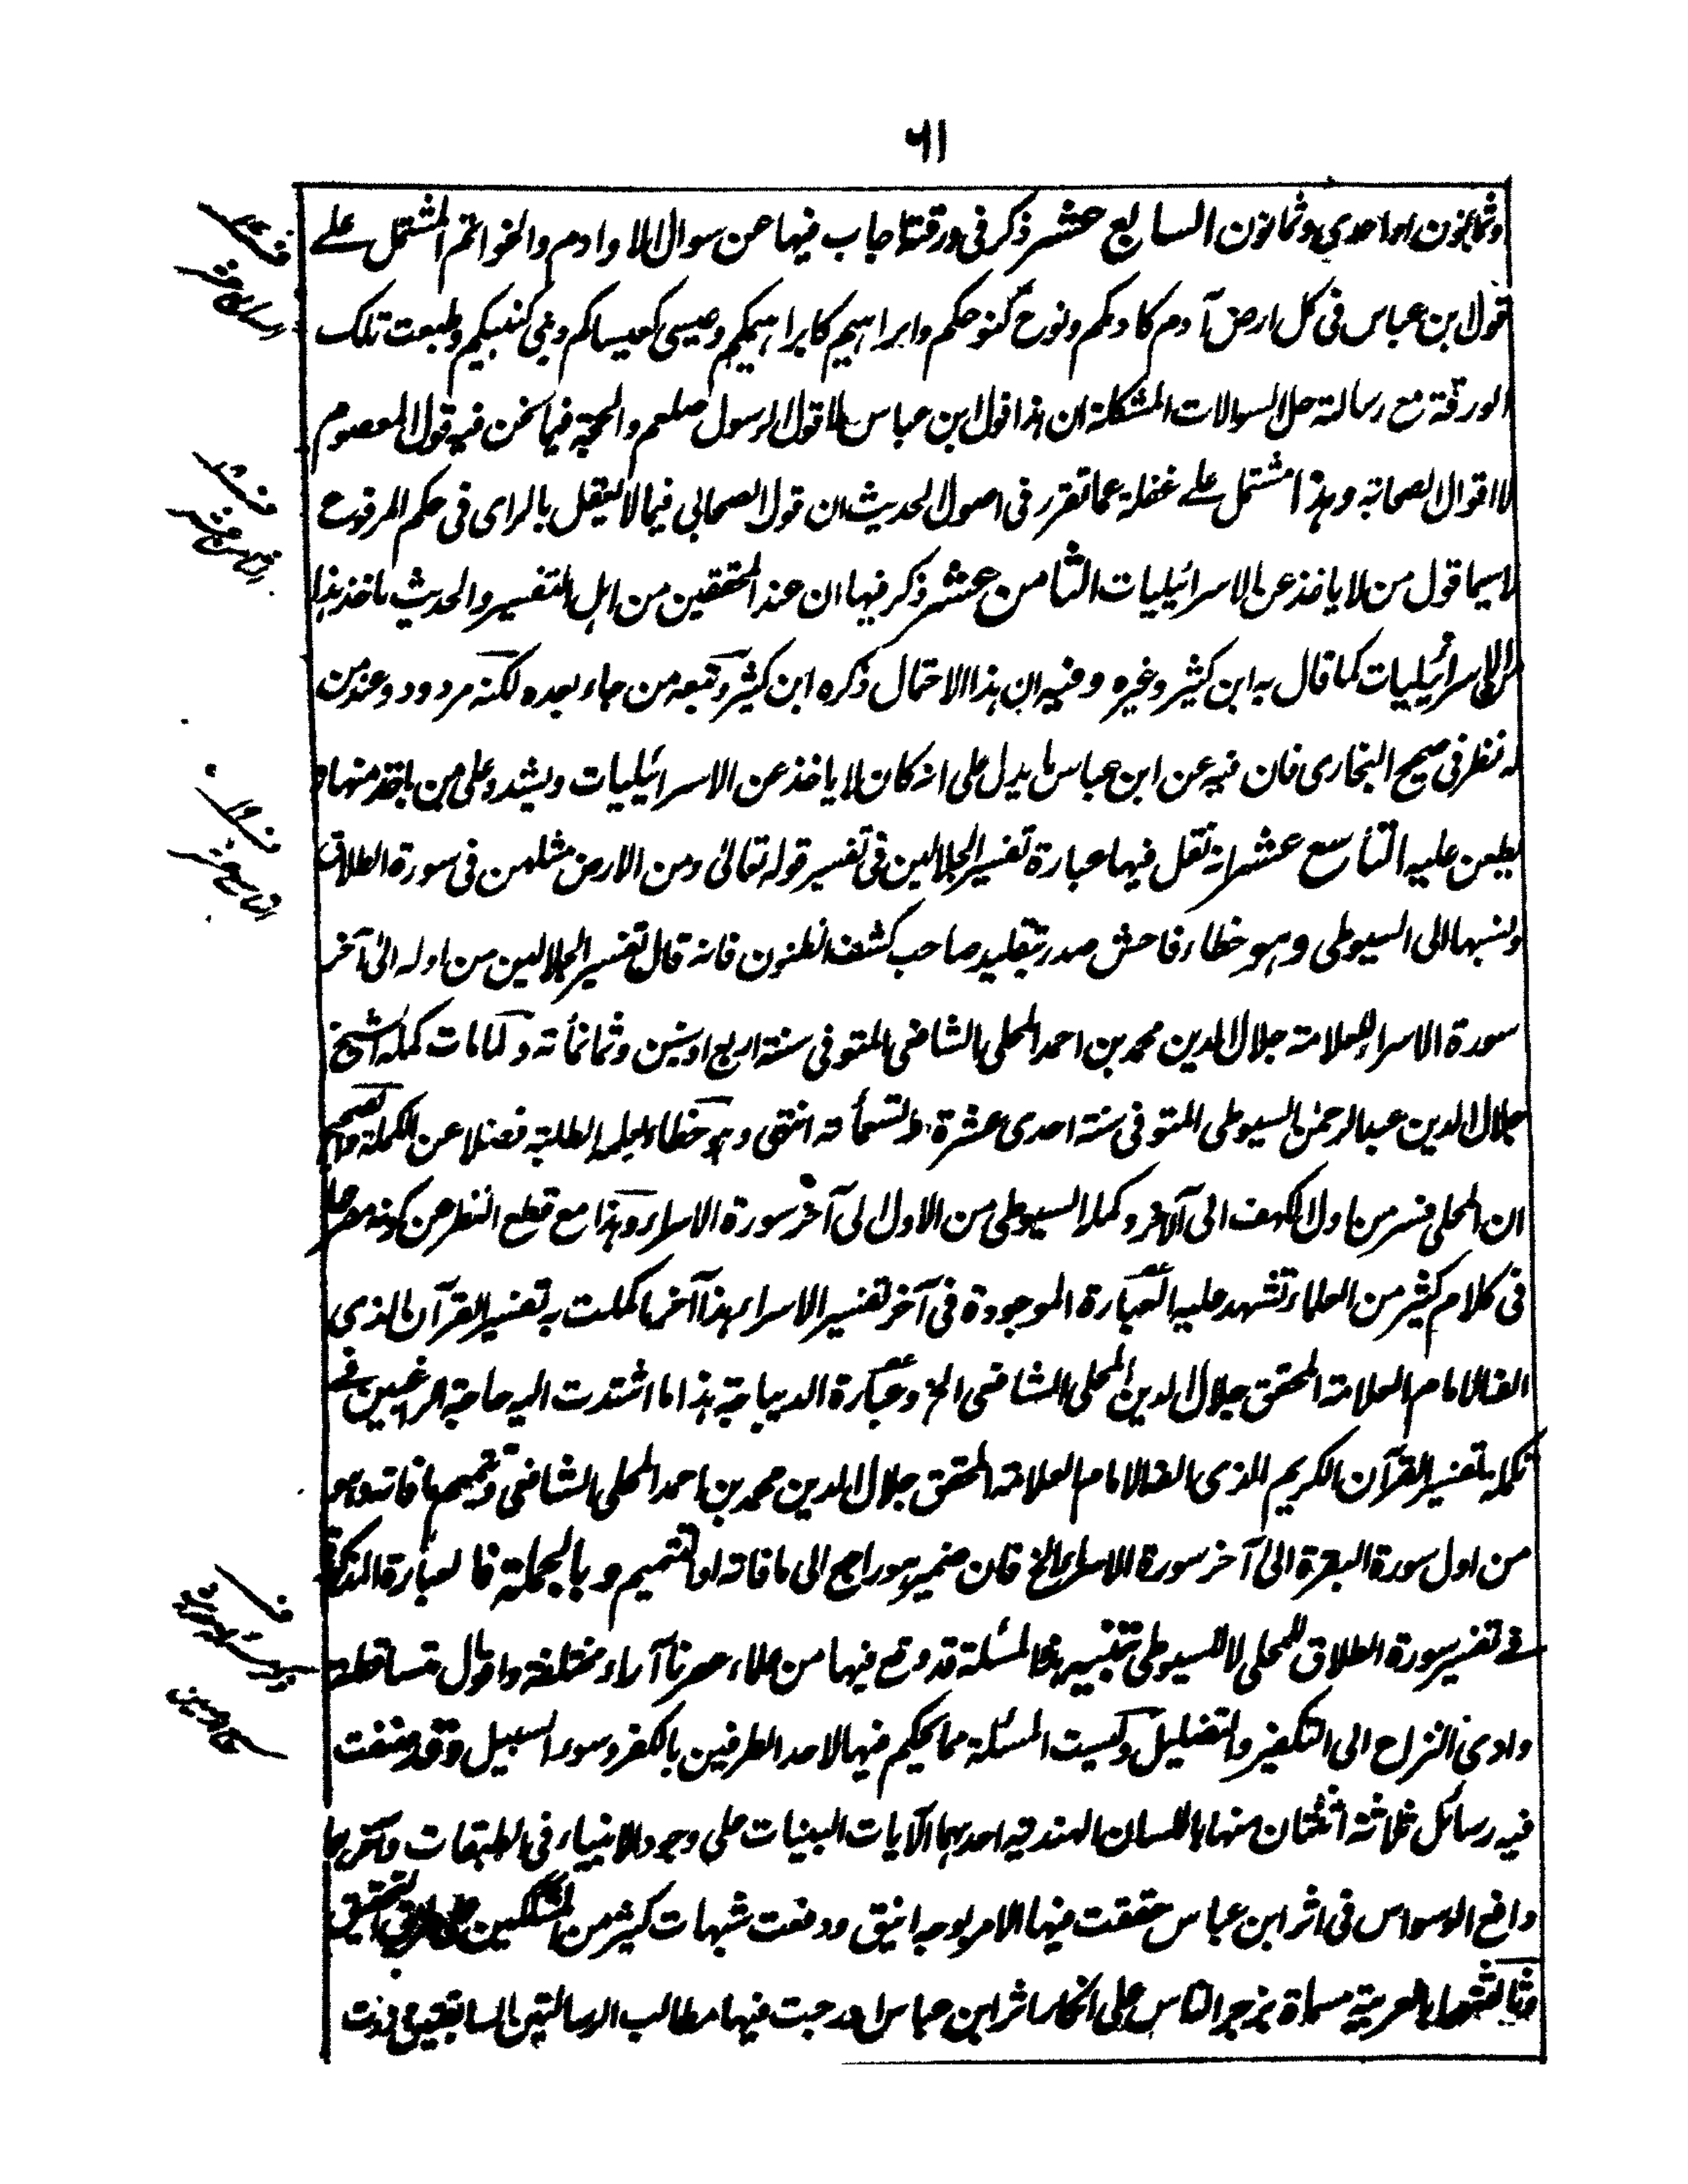 ٦١
وثمانون او احدي وثمانون السابع عشر ذكر فى ورقة اجاب فيها عن سوال الاوادم والخواتم المشتمل على
قول ابن عباس فى كل ارض آدم كادمكم ونوح كنوحكم وابراهيم كابراهيمكم وعيسى كعيساكم ونبى كنبيكم وطبعت تلك
الورقة مع رسالته حل السوالات المشكلة ان هذا قول ابن عباس لا قول الرسول صلعم والحجة فيما نحن فيه قول المعصوم
لا اقوال الصحابة وهذا مشتمل على غفلة عما تقرر فى اصول الحديث ان قول الصحابي فيما لا يعقل بالراى فى حكم المرفوع
لاسيما قول من لا ياخذ عن الاسرائيليات الثامن عشر ذكر فيها ان عند المحققين من اهل التفسير والحديث ماخذ هذا
الاسرائيليات كما قال به ابن كثير وغيره وفيه ان هذا الاحتمال ذكره ابن كثير وتبعه من جاء بعده لكنه مردود عند من
له نظر فى صحيح البخارى فان فيه عن ابن عباس ما يدل على انه كان لا ياخذ عن الاسرائيليات ويشدد على من ياخذ منها و
يطعن عليه التاسع عشر انه نقل فيها عبارة تفسير الجلالين فى تفسير قوله تعالى ومن الارض مثلهن فى سورة الطلاق
ونسبها الى السيوطى وهو خطاء فاحش صدر بتقليد صاحب كشف الظنون فانه قال تفسير الجلالين من اوله الى آخر
سورة الاسراء للعلامة جلال الدين محمد بن احمد المحلى الشافعى المتوفى سنة اربع وستين وثمانمأته ولما مات كمله الشيخ
جلال الدين عبد الرحمن السيوطى المتوفى سنة احدى عشرة وتسعمأته انتهى وهو خطاء يعلمه الطلبة فضلا عن الكملة والصحيح
ان المحلى فسر من اول الكهف الى الآخر وكمله السيوطى من الاول الى آخر سورة الاسراء وهذا مع قطع النظر عن كونه مصرحا
فى كلام كثير من العلماء تشهد عليه العبارة الموجودة فى آخر تفسير الاسراء هذا آخر ما كملت به تفسير القرآن الذى
الفه الامام العلامة المحقق جلال الدين المحلى الشافعى الخ وعبارة الديباجة هذا ما اشتدت اليه حاجة الراغبين فى
تكملة تفسير القرآن الكريم الذى الفه الامام العلامة المحقق جلال الدين محمد بن احمد المحلى الشافعى وتتميم ما فاته وهو
من اول سورة البقرة الى آخر سورة الاسراء الخ فان ضمير هو راجع الى ما فاته او التتميم وبالجملة فالعبارة المذكورة
فى تفسير سورة الطلاق للمحلى لا للسيوطى تنبيه هذا المسئلة قد وقع فيها من علماء عصرنا آراء مختلفة واقوال متساقطة
وادى النزاع الى التكفير والتضليل وليست المسئلة مما يحكم فيها لاحد الطرفين بالكفر وسوء السبيل وقد صنفت
فيه رسائل ثلاثة اثنتان منها باللسان الهندية احدهما الآيات البينات على وجود الانبياء فى الطبقات واخرىها
دافع الوسواس فى اثر ابن عباس حققت فيها الامر بوجه انيق ودفعت شبهات كثير من المشككين
وثالثتها بالعربية مسماة بزجر الناس على انكار اثر ابن عباس ادرجت فيها مطالب الرسالتين السابقتين
السابع عشر
الثامن عشر
التاسع عشر